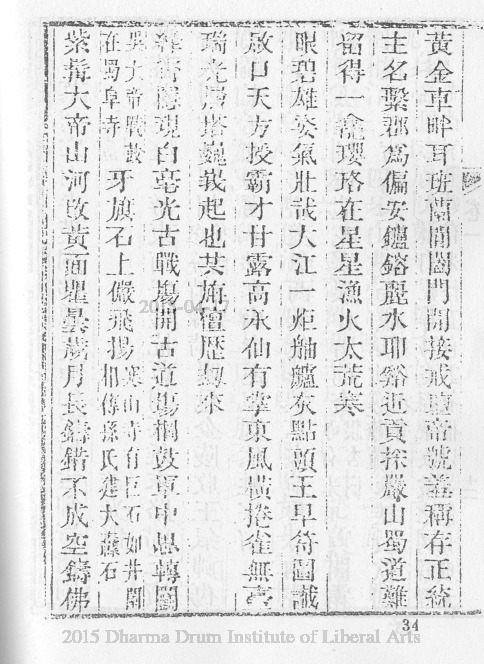 黃金車畔耳班蘭閶闔門開接戒壇帝號羞稱存正統
主名繫郡爲偏安鑪鎔麗水耶谿近貢採嚴山蜀道難
留得一龕瓔珞在星星漁火太荒寒
眼碧雄姿氣壯哉大江一炬舳艫灰點頭王早符圖讖
啟口天方授霸才甘露高承仙有掌東風橫捲雀無臺
瑞光層塔巍峩起也共旃檀歷劫來
霄隱現白毫光古戰塲開古道塲桐鼓軍中思轉鬬
吳大帝戰鼓在蜀阜寺牙旗石上儼飛揚寒山寺有巨石如井闌相傳孫氏建大纛石
紫髯大帝山河改黃面瞿曇歲月長鑄錯不成空鑄佛
34
2015 Dharma Drum Institute of Liberal Arts